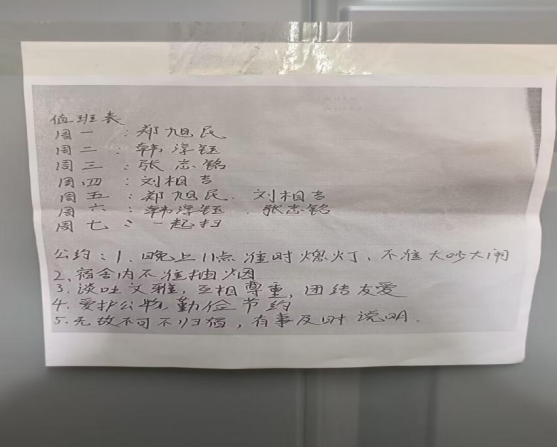 值班表
周一：郑旭民
周二：韩淳钰
周三：张志铭
周四：刘相吉
周五：郑旭民、刘相吉
周六：韩淳钰、张志铭
周七：一起扫
公约：1、晚上11点准时熄灯，不准大吵大闹
2、宿舍内不准抽烟
3、谈吐文雅，互相尊重，团结友爱
4、爱护公物，勤俭节约
5、无故不可不归宿，有事及时说明.